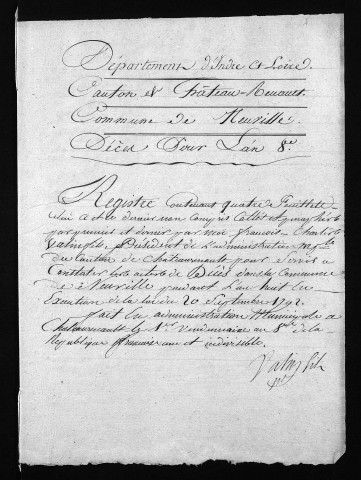 Département d'Indre et Loire.
Canton de Château-Renault
Commune de Neuville
Décès Pour L'an 8.e
Registre Contenant quatre feuillets
celui a été donné non compris celles
par premier et dernier par moi françois-Charles
Président de L'administration mp.le
du Canton de Chateaurenault pour Servir a
Constater les actes de Décès dans la Commune
de Neuville pendant L'an huit en
Execution de la loi du 20 Septembre 1792.
fait en administration Municipale a
Chateaurenault le 1.er Vendemiaire an 8.me de la
Republique française une et indivisible.